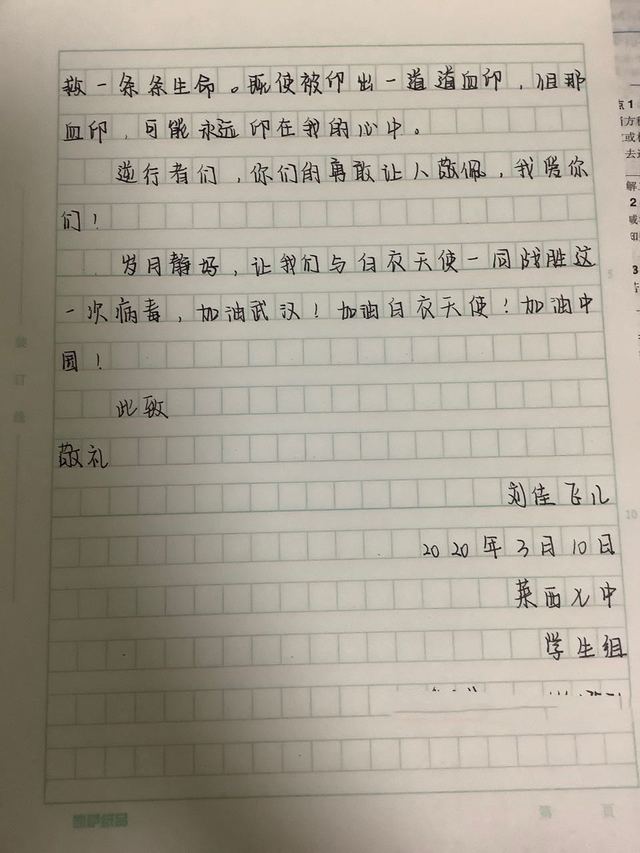 救一条条生命。既使被印出一道道血印，但那
血印，可能永远印在我的心中。
逆行者们，你们的勇敢让人敬佩，我爱你
们！
岁月静好，让我们与白衣天使一同战胜这
一次病毒，加油武汉！加油白衣天使！加油中
国！
此致
敬礼
刘佳飞儿
2020年3月10日
莱西七中
学生组